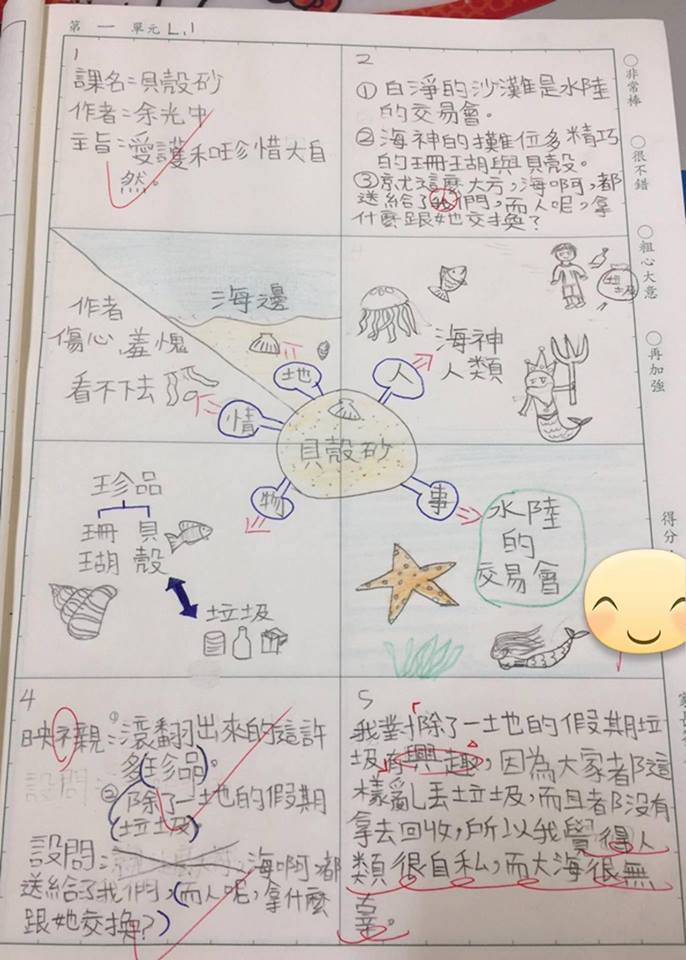 第 一 單元 L.1
1
課名:貝殼砂
作者:余光中
主旨:愛護和珍惜大自
然。
2
①白淨的沙灘是水陸
的交易會。
②海神的攤位多精巧
的珊瑚與貝殼。
③就這麼大方,海啊,都
送給了我們,而人呢,拿
什麼跟她交換?
○非常棒
○很不錯
○粗心大意
○再加強
得分
作者
傷心 羞愧
看不下去
海邊
海神
人類
垃圾
地
人
情
貝殼砂
物
事
珍品
珊 貝
瑚 殼
垃圾
水陸
的
交易會
4
映襯:①滾翻出來的這許
多(珍品)。
②(除了一土也的假期
垃圾)
設問:海啊,都
送給了我們,(而人呢,拿什麼
跟她交換?)
5
我對「除了一土也的假期垃
圾」有興趣,因為大家都這
樣亂丟垃圾,而且都沒有
拿去回收,所以我覺得人
類很自私,而大海很無
辜。